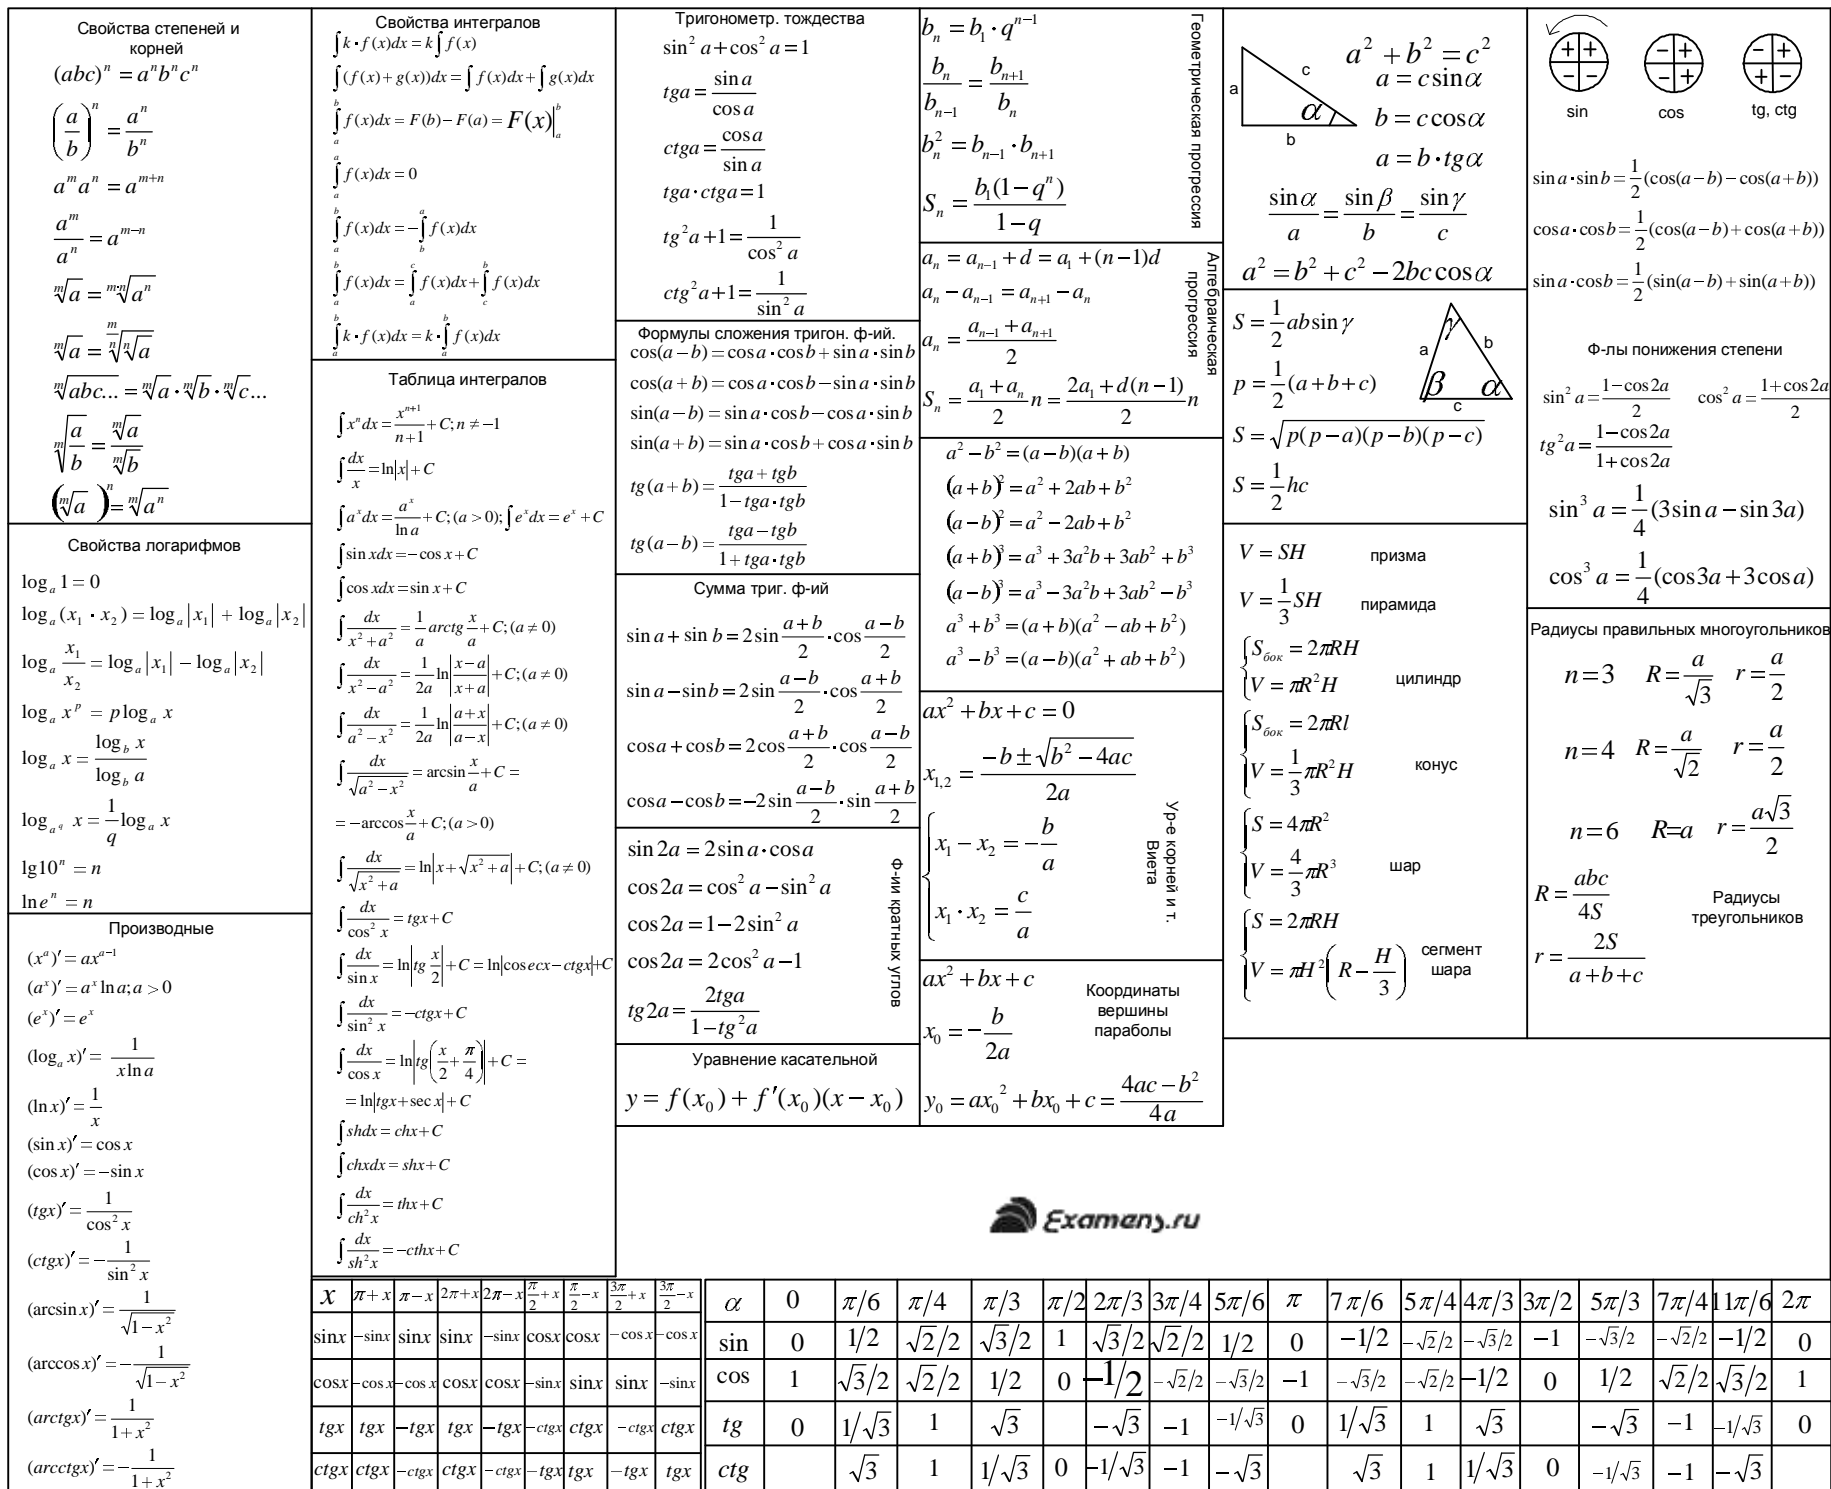 Свойства степеней и
корней
(abc)ⁿ = aⁿbⁿcⁿ
(a/b)ⁿ = aⁿ/bⁿ
aᵐaⁿ = aᵐ⁺ⁿ
aᵐ/aⁿ = aᵐ⁻ⁿ
ᵐ√a = ᵐ·ⁿ√aⁿ
ᵐ√a = ᵐ/ⁿ√(ⁿ√a)
ᵐ√(abc...) = ᵐ√a · ᵐ√b · ᵐ√c...
ᵐ√(a/b) = ᵐ√a/ᵐ√b
(ᵐ√a)ⁿ = ᵐ√aⁿ
Свойства логарифмов
logₐ 1 = 0
logₐ(x₁ · x₂) = logₐ|x₁| + logₐ|x₂|
logₐ x₁/x₂ = logₐ|x₁| − logₐ|x₂|
logₐ xᵖ = p logₐ x
logₐ x = log_b x/log_b a
log_{a^q} x = 1/q logₐ x
lg10ⁿ = n
ln eⁿ = n
Производные
(xᵃ)′ = axᵃ⁻¹
(aˣ)′ = aˣ ln a; a > 0
(eˣ)′ = eˣ
(logₐ x)′ = 1/(x ln a)
(ln x)′ = 1/x
(sin x)′ = cos x
(cos x)′ = −sin x
(tgx)′ = 1/cos² x
(ctgx)′ = −1/sin² x
(arcsin x)′ = 1/√(1−x²)
(arccos x)′ = −1/√(1−x²)
(arctgx)′ = 1/(1+x²)
(arcctgx)′ = −1/(1+x²)
Свойства интегралов
∫k·f(x)dx = k∫f(x)
∫(f(x)+g(x))dx = ∫f(x)dx + ∫g(x)dx
∫ₐᵇ f(x)dx = F(b) − F(a) = F(x)|ₐᵇ
∫ₐᵃ f(x)dx = 0
∫ₐᵇ f(x)dx = −∫_b^a f(x)dx
∫ₐᵇ f(x)dx = ∫ₐᶜ f(x)dx + ∫_c^b f(x)dx
∫ₐᵇ k·f(x)dx = k·∫ₐᵇ f(x)dx
Таблица интегралов
∫xⁿdx = xⁿ⁺¹/(n+1) + C; n ≠ −1
∫dx/x = ln|x| + C
∫aˣdx = aˣ/ln a + C; (a > 0); ∫eˣdx = eˣ + C
∫sin xdx = −cos x + C
∫cos xdx = sin x + C
∫dx/(x²+a²) = 1/a arctg x/a + C; (a ≠ 0)
∫dx/(x²−a²) = 1/2a ln|(x−a)/(x+a)| + C; (a ≠ 0)
∫dx/(a²−x²) = 1/2a ln|(a+x)/(a−x)| + C; (a ≠ 0)
∫dx/√(a²−x²) = arcsin x/a + C =
= −arccos x/a + C; (a > 0)
∫dx/√(x²+a) = ln|x+√(x²+a)| + C; (a ≠ 0)
∫dx/cos² x = tgx + C
∫dx/sin x = ln|tg x/2| + C = ln|cosecx − ctgx| + C
∫dx/sin² x = −ctgx + C
∫dx/cos x = ln|tg(x/2 + π/4)| + C =
= ln|tgx + sec x| + C
∫shdx = chx + C
∫chxdx = shx + C
∫dx/ch²x = thx + C
∫dx/sh²x = −cthx + C
Тригонометр. тождества
sin² a + cos² a = 1
tga = sin a/cos a
ctga = cos a/sin a
tga·ctga = 1
tg²a + 1 = 1/cos² a
ctg²a + 1 = 1/sin² a
Формулы сложения тригон. ф-ий.
cos(a−b) = cos a·cos b + sin a·sin b
cos(a+b) = cos a·cos b − sin a·sin b
sin(a−b) = sin a·cos b − cos a·sin b
sin(a+b) = sin a·cos b + cos a·sin b
tg(a+b) = (tga+tgb)/(1−tga·tgb)
tg(a−b) = (tga−tgb)/(1+tga·tgb)
Сумма триг. ф-ий
sin a + sin b = 2sin (a+b)/2 · cos (a−b)/2
sin a − sin b = 2sin (a−b)/2 · cos (a+b)/2
cos a + cos b = 2cos (a+b)/2 · cos (a−b)/2
cos a − cos b = −2sin (a−b)/2 · sin (a+b)/2
sin 2a = 2sin a·cos a
cos 2a = cos² a − sin² a
cos 2a = 1 − 2sin² a
cos 2a = 2cos² a − 1
tg2a = 2tga/(1−tg²a)
Ф-ии кратных углов
Уравнение касательной
y = f(x₀) + f′(x₀)(x − x₀)
bₙ = b₁ · qⁿ⁻¹
bₙ/bₙ₋₁ = bₙ₊₁/bₙ
bₙ² = bₙ₋₁ · bₙ₊₁
Sₙ = b₁(1−qⁿ)/(1−q)
Геометрическая прогрессия
aₙ = aₙ₋₁ + d = a₁ + (n−1)d
aₙ − aₙ₋₁ = aₙ₊₁ − aₙ
aₙ = (aₙ₋₁ + aₙ₊₁)/2
Sₙ = (a₁+aₙ)/2 n = (2a₁+d(n−1))/2 n
Алгебраическая
прогрессия
a² − b² = (a−b)(a+b)
(a+b)² = a² + 2ab + b²
(a−b)² = a² − 2ab + b²
(a+b)³ = a³ + 3a²b + 3ab² + b³
(a−b)³ = a³ − 3a²b + 3ab² − b³
a³ + b³ = (a+b)(a² − ab + b²)
a³ − b³ = (a−b)(a² + ab + b²)
ax² + bx + c = 0
x₁,₂ = (−b ± √(b² − 4ac))/2a
x₁ − x₂ = −b/a
x₁ · x₂ = c/a
Ур-е корней и т.
Виета
ax² + bx + c
x₀ = −b/2a
y₀ = ax₀² + bx₀ + c = (4ac − b²)/4a
Координаты
вершины
параболы
a c α b
a² + b² = c²
a = c sin α
b = c cos α
a = b·tgα
sin α/a = sin β/b = sin γ/c
a² = b² + c² − 2bc cos α
S = 1/2 ab sin γ
p = 1/2 (a+b+c)
S = √(p(p−a)(p−b)(p−c))
S = 1/2 hc
γ a b β α c
V = SH призма
V = 1/3 SH пирамида
S_бок = 2πRH
V = πR²H
цилиндр
S_бок = 2πRl
V = 1/3 πR²H
конус
S = 4πR²
V = 4/3 πR³
шар
S = 2πRH
V = πH²(R − H/3)
сегмент
шара
+ + − − − + − + − + + −
sin cos tg, ctg
sin a·sin b = 1/2 (cos(a−b) − cos(a+b))
cos a·cos b = 1/2 (cos(a−b) + cos(a+b))
sin a·cos b = 1/2 (sin(a−b) + sin(a+b))
Ф-лы понижения степени
sin² a = (1−cos 2a)/2 cos² a = (1+cos 2a)/2
tg²a = (1−cos 2a)/(1+cos 2a)
sin³ a = 1/4 (3sin a − sin 3a)
cos³ a = 1/4 (cos 3a + 3cos a)
Радиусы правильных многоугольников
n=3 R = a/√3 r = a/2
n=4 R = a/√2 r = a/2
n=6 R=a r = a√3/2
R = abc/4S
r = 2S/(a+b+c)
Радиусы
треугольников
Examens.ru
x π+x π−x 2π+x 2π−x π/2+x π/2−x 3π/2+x 3π/2−x
sinx −sinx sinx sinx −sinx cosx cosx −cosx −cosx
cosx −cosx −cosx cosx cosx −sinx sinx sinx −sinx
tgx tgx −tgx tgx −tgx −ctgx ctgx −ctgx ctgx
ctgx ctgx −ctgx ctgx −ctgx −tgx tgx −tgx tgx
α 0 π/6 π/4 π/3 π/2 2π/3 3π/4 5π/6 π 7π/6 5π/4 4π/3 3π/2 5π/3 7π/4 11π/6 2π
sin 0 1/2 √2/2 √3/2 1 √3/2 √2/2 1/2 0 −1/2 −√2/2 −√3/2 −1 −√3/2 −√2/2 −1/2 0
cos 1 √3/2 √2/2 1/2 0 −1/2 −√2/2 −√3/2 −1 −√3/2 −√2/2 −1/2 0 1/2 √2/2 √3/2 1
tg 0 1/√3 1 √3 −√3 −1 −1/√3 0 1/√3 1 √3 −√3 −1 −1/√3 0
ctg √3 1 1/√3 0 −1/√3 −1 −√3 √3 1 1/√3 0 −1/√3 −1 −√3